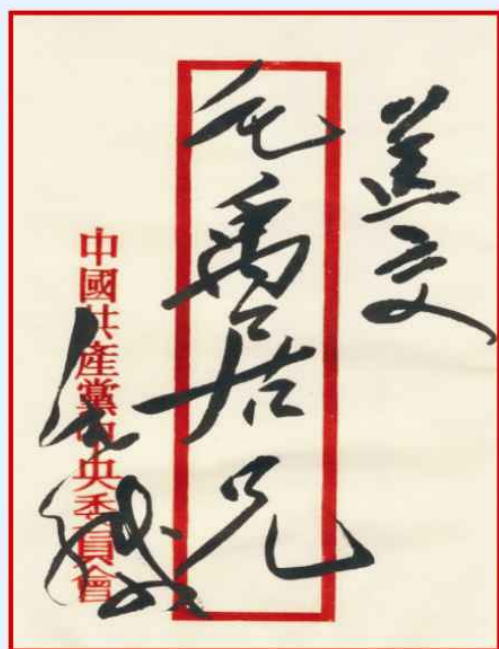 送交
毛禹居兄
中國共產黨中央委員會